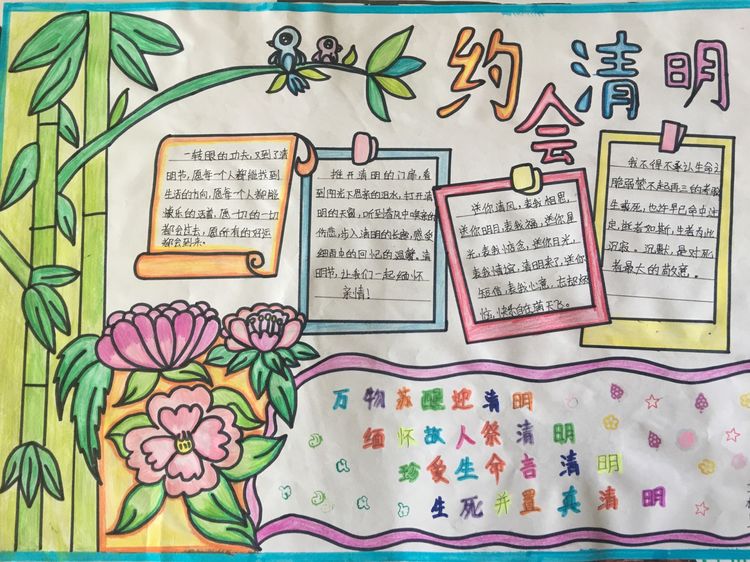 约会清明
一转眼的功夫，又到了清
明节，愿每一个人都能找到
生活的方向，愿每一个人都能
快乐的活着，愿一切的一切
都会过去，愿所有的好运
都会到来。
推开清明的门扉，看
到阳光下思亲的泪水，打开清
明的天窗，听到清风中唤亲的
伤悲，步入清明的长廊，感受
细雨中的回忆的温馨，清
明节，让我们一起缅怀
亲情！
送你清风，表我相思，
送你明月，表我福，送你星
光，表我惦念，送你日光，
表我情谊，清明来了，送你
短信，表我心意，忘却烦
恼，快乐自在满天飞。
我不得不承认生命之
脆弱
生或死，也许早已命中注
定，逝者如斯，生者为此
沉寂，沉默，是对死
者最大的敬意。
万物苏醒迎清明
缅怀故人祭清明
珍爱生命言清明
生死并置真清明